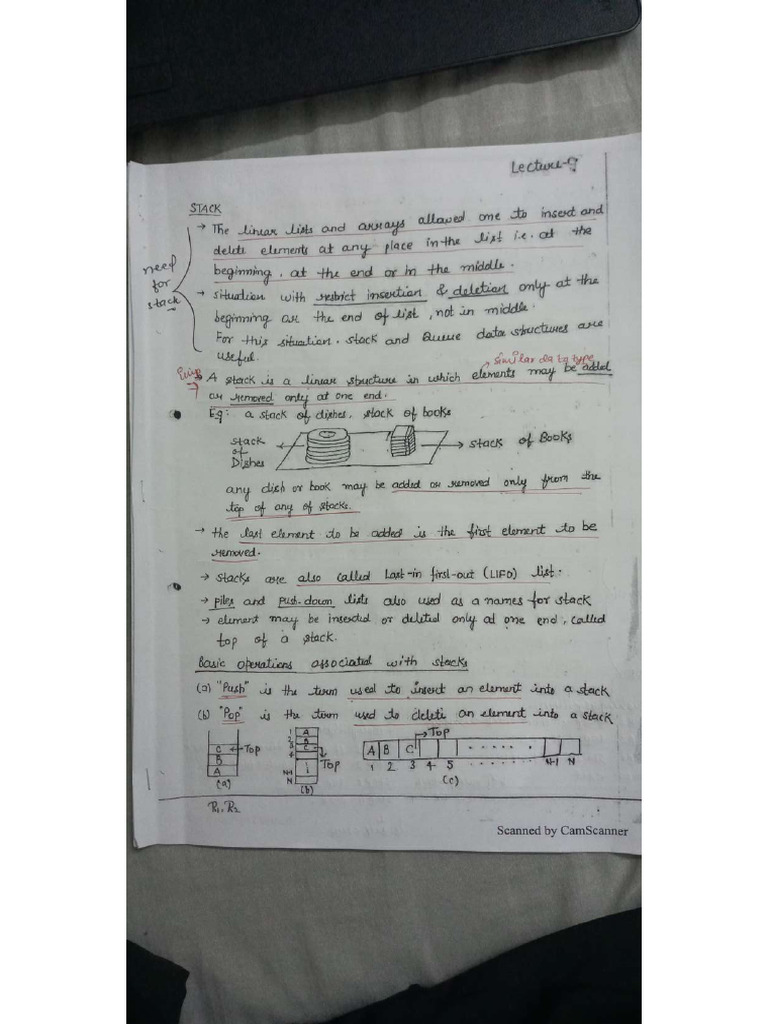 Lecture-9
STACK
→ The linear lists and arrays allowed one to insert and
delete elements at any place in the list i.e. at the
beginning, at the end or in the middle.
need
for
stack
→ situation with restrict insertion & deletion only at the
beginning or the end of list, not in middle.
For this situation, stack and Queue data structures are
useful.
similar data type
→ A stack is a linear structure in which elements may be added
or removed only at one end.
Eg: a stack of dishes, stack of books
stack
of
Dishes
→ stack of Books
any dish or book may be added or removed only from the
top of any of stacks.
→ the last element to be added is the first element to be
removed.
→ stacks are also called Last-in first-out (LIFO) list.
→ piles and push-down lists also used as a names for stack
→ element may be inserted or deleted only at one end, called
top of a stack.
Basic operations associated with stacks
(a) "Push" is the term used to insert an element into a stack
(b) "Pop" is the term used to delete an element into a stack
C ←Top
B
A
(a)
1 A
2 B
3 C
4
Top
N-1
N
(b)
→Top
A B C
1 2 3 4 5 ...... N-1 N
(c)
R1, R2
Scanned by CamScanner